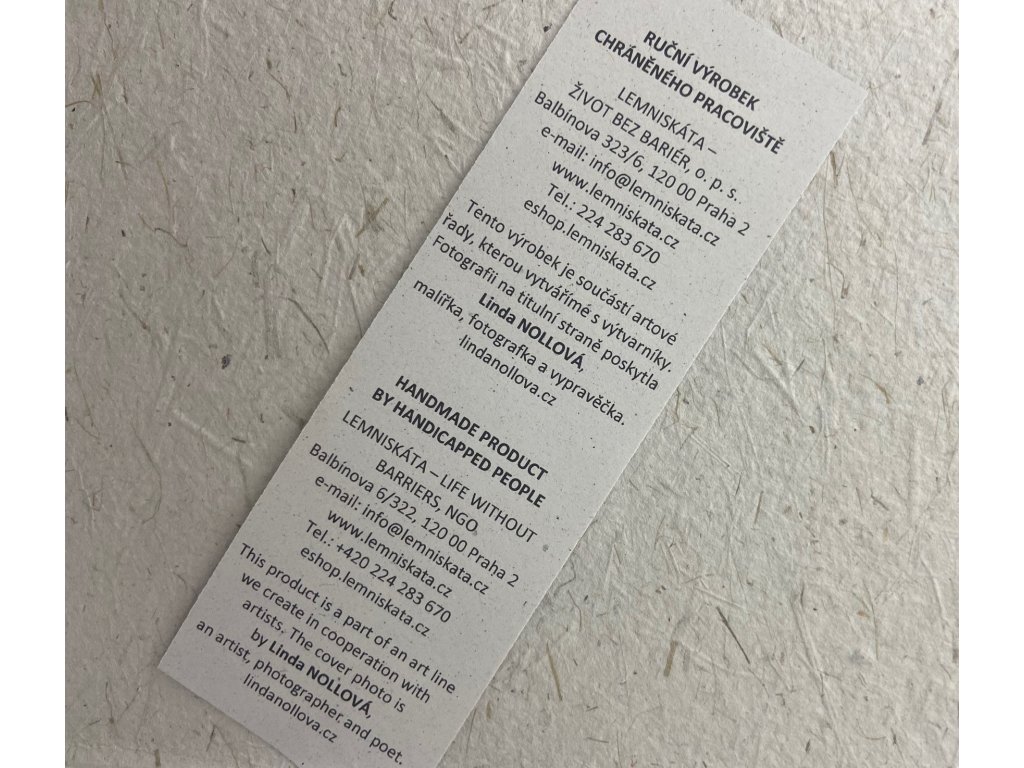 RUČNÍ VÝROBEK
CHRÁNĚNÉHO PRACOVIŠTĚ
LEMNISKÁTA –
ŽIVOT BEZ BARIÉR, o. p. s.
Balbínova 323/6, 120 00 Praha 2
e-mail: info@lemniskata.cz
www.lemniskata.cz
Tel.: 224 283 670
eshop.lemniskata.cz
Tento výrobek je součástí artové
řady, kterou vytváříme s výtvarníky.
Fotografii na titulní straně poskytla
Linda NOLLOVÁ,
malířka, fotografka a vypravěčka.
lindanollova.cz
HANDMADE PRODUCT
BY HANDICAPPED PEOPLE
LEMNISKÁTA – LIFE WITHOUT
BARRIERS, NGO
Balbínova 6/322, 120 00 Praha 2
e-mail: info@lemniskata.cz
www.lemniskata.cz
Tel.: +420 224 283 670
eshop.lemniskata.cz
This product is a part of an art line
we create in cooperation with
artists. The cover photo is
by Linda NOLLOVÁ,
an artist, photographer and poet.
lindanollova.cz